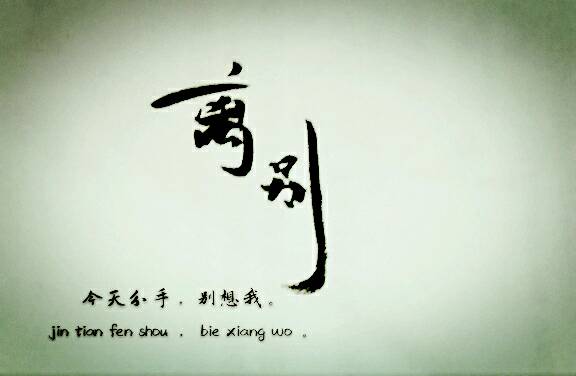 离别
今天分手。别想我。
jin tian fen shou . bie xiang wo 。